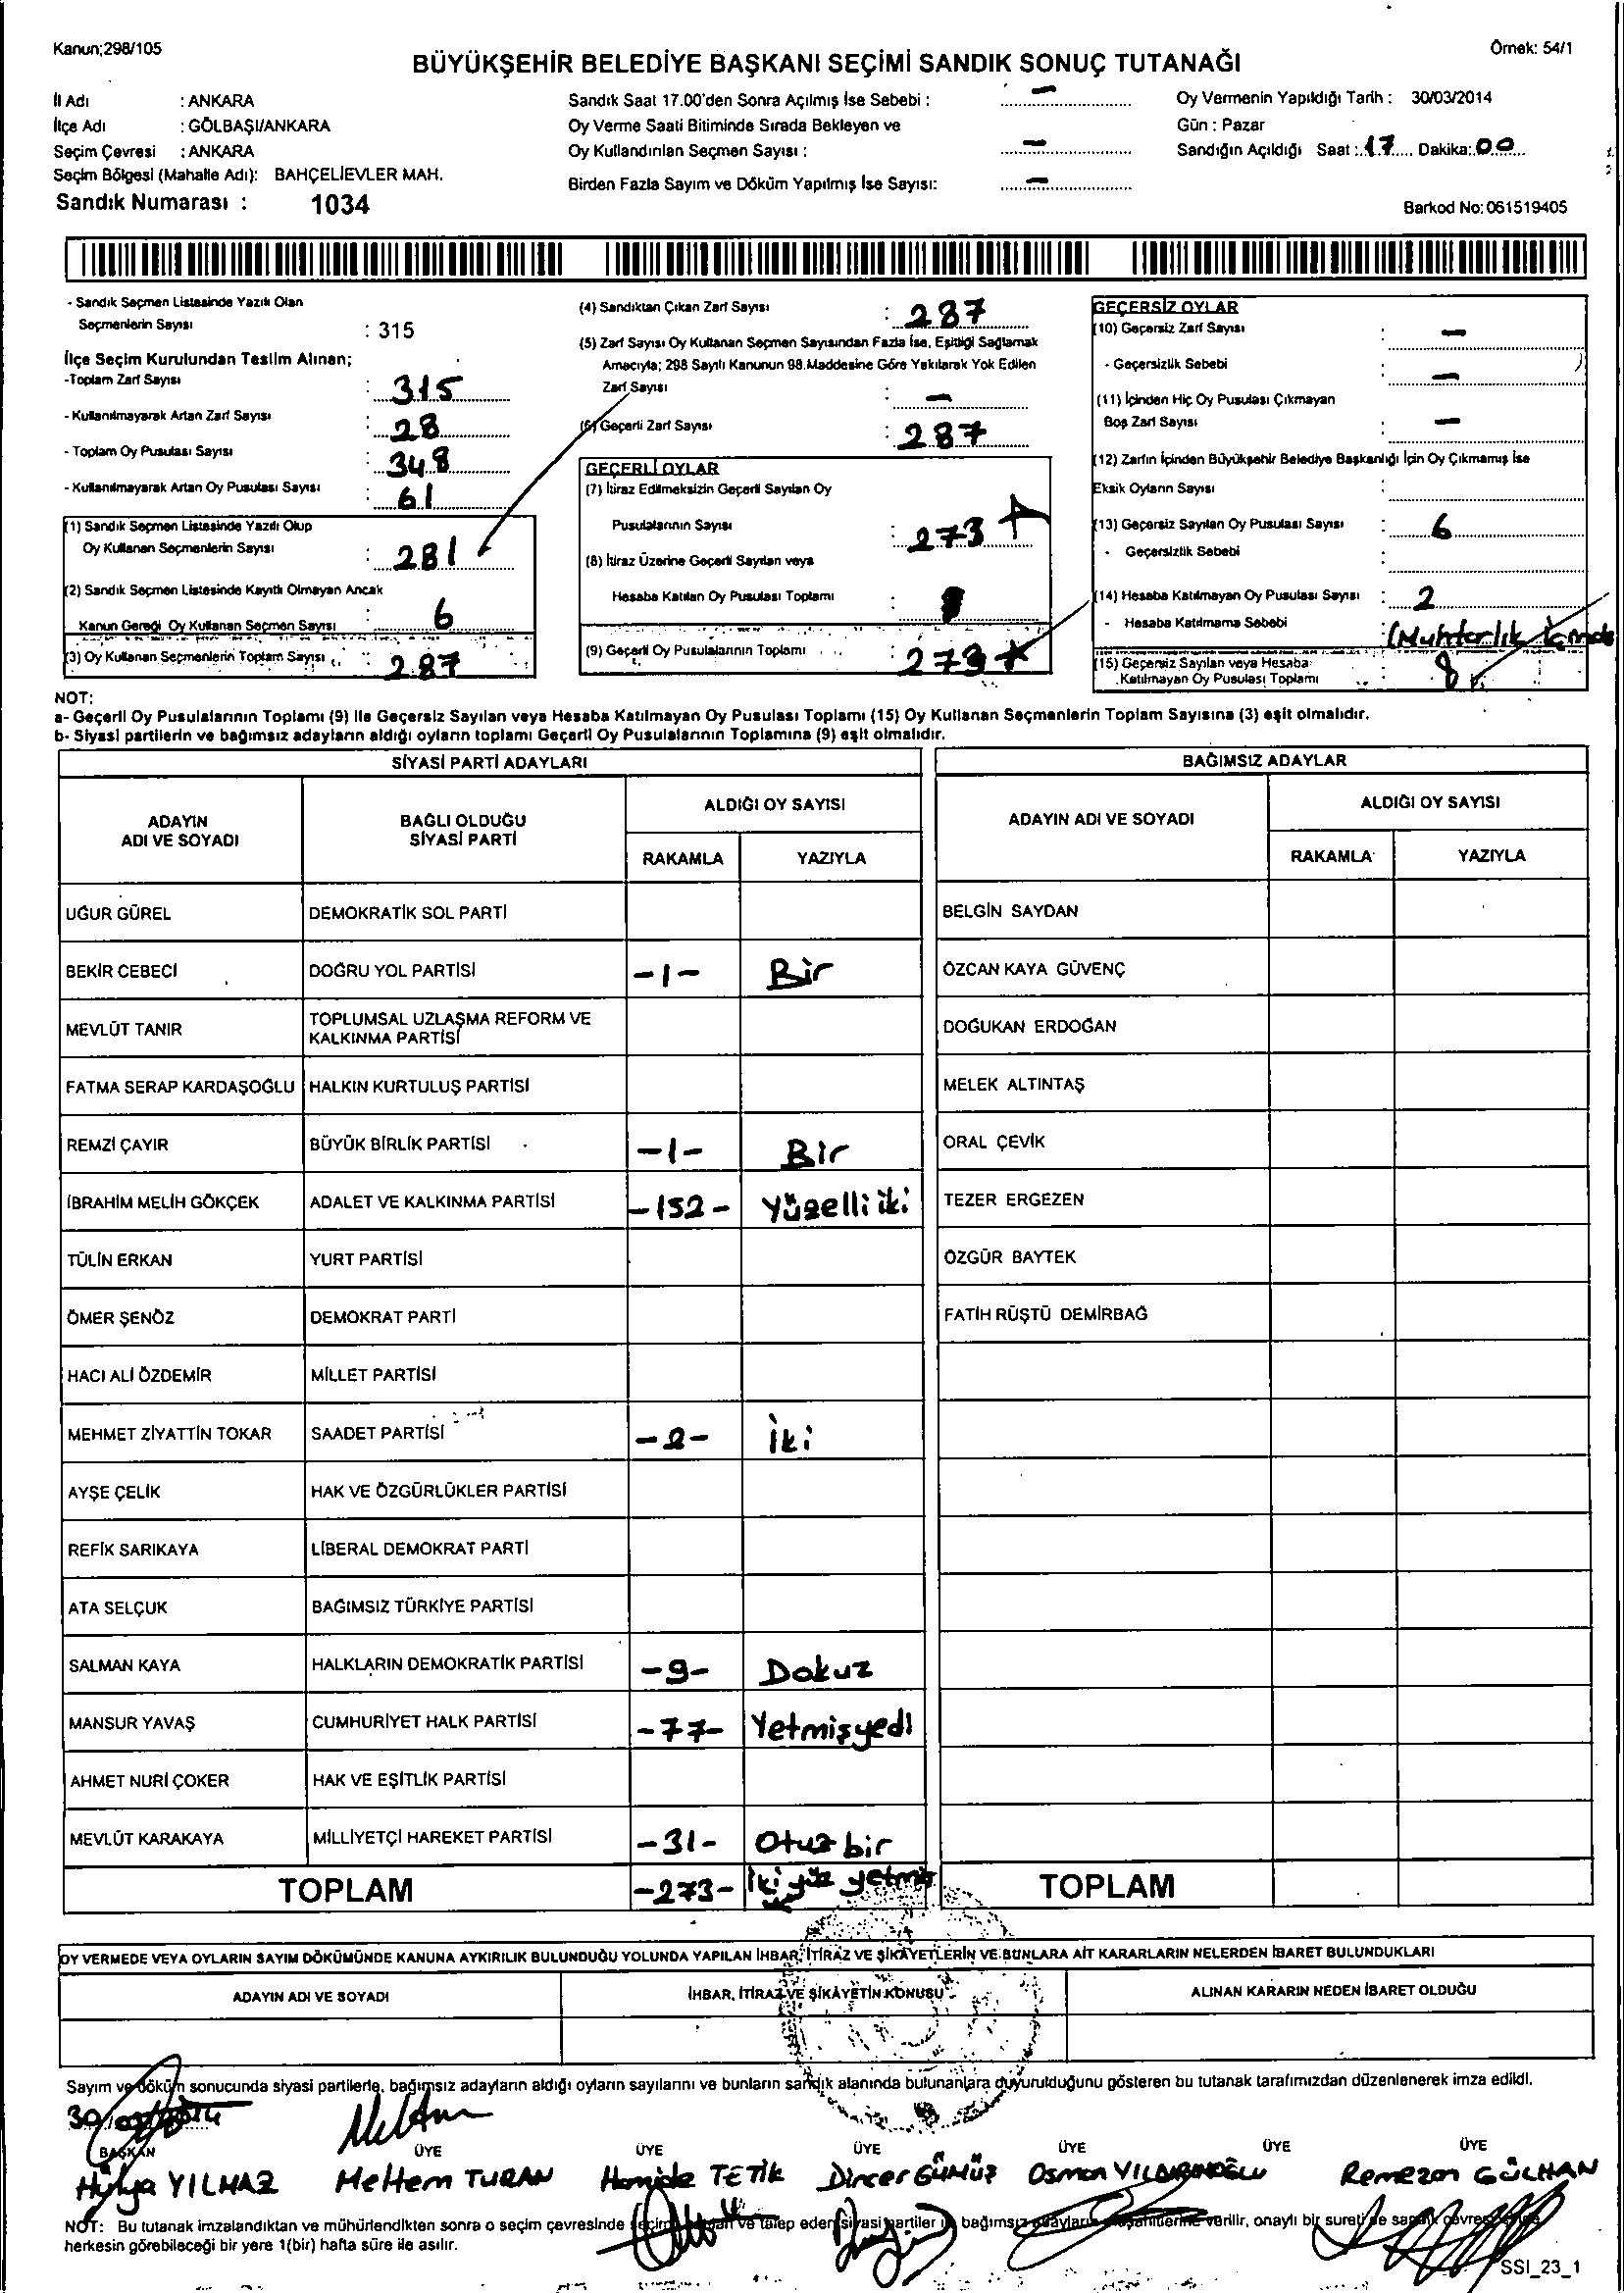 Kanun;298/105
Örnek: 54/1
BÜYÜKŞEHİR BELEDİYE BAŞKANI SEÇİMİ SANDIK SONUÇ TUTANAĞI
İl Adı : ANKARA
İlçe Adı : GÖLBAŞI/ANKARA
Seçim Çevresi : ANKARA
Seçim Bölgesi (Mahalle Adı): BAHÇELİEVLER MAH.
Sandık Numarası : 1034
Sandık Saat 17.00'den Sonra Açılmış İse Sebebi : –
Oy Verme Saati Bitiminde Sırada Bekleyen ve
Oy Kullandırılan Seçmen Sayısı : –
Birden Fazla Sayım ve Döküm Yapılmış İse Sayısı: –
Oy Vermenin Yapıldığı Tarih : 30/03/2014
Gün : Pazar
Sandığın Açıldığı Saat : 17 Dakika: 00
Barkod No: 061519405
- Sandık Seçmen Listesinde Yazılı Olan
Seçmenlerin Sayısı : 315
İlçe Seçim Kurulundan Teslim Alınan;
-Toplam Zarf Sayısı : 315
- Kullanılmayarak Artan Zarf Sayısı : 28
- Toplam Oy Pusulası Sayısı : 348
- Kullanılmayarak Artan Oy Pusulası Sayısı : 61
(1) Sandık Seçmen Listesinde Yazılı Olup
Oy Kullanan Seçmenlerin Sayısı : 281
(2) Sandık Seçmen Listesinde Kayıtlı Olmayan Ancak
Kanun Gereği Oy Kullanan Seçmen Sayısı : 6
(3) Oy Kullanan Seçmenlerin Toplam Sayısı : 287
(4) Sandıktan Çıkan Zarf Sayısı : 287
(5) Zarf Sayısı Oy Kullanan Seçmen Sayısından Fazla İse, Eşitliği Sağlamak
Amacıyla; 298 Sayılı Kanunun 98.Maddesine Göre Yakılarak Yok Edilen
Zarf Sayısı : –
(6) Geçerli Zarf Sayısı : 287
GEÇERLİ OYLAR
(7) İtiraz Edilmeksizin Geçerli Sayılan Oy
Pusulalarının Sayısı : 273
(8) İtiraz Üzerine Geçerli Sayılan veya
Hesaba Katılan Oy Pusulası Toplamı :
(9) Geçerli Oy Pusulalarının Toplamı : 273
GEÇERSİZ OYLAR
(10) Geçersiz Zarf Sayısı : –
- Geçersizlik Sebebi : –
(11) İçinden Hiç Oy Pusulası Çıkmayan
Boş Zarf Sayısı : –
(12) Zarfın İçinden Büyükşehir Belediye Başkanlığı İçin Oy Çıkmamış İse
Eksik Oyların Sayısı :
(13) Geçersiz Sayılan Oy Pusulası Sayısı : 6
- Geçersizlik Sebebi :
(14) Hesaba Katılmayan Oy Pusulası Sayısı : 2
- Hesaba Katılmama Sebebi : (Muhtarlık
(15) Geçersiz Sayılan veya Hesaba
Katılmayan Oy Pusulası Toplamı : 8
NOT:
a- Geçerli Oy Pusulalarının Toplamı (9) ile Geçersiz Sayılan veya Hesaba Katılmayan Oy Pusulası Toplamı (15) Oy Kullanan Seçmenlerin Toplam Sayısına (3) eşit olmalıdır.
b- Siyasi partilerin ve bağımsız adayların aldığı oyların toplamı Geçerli Oy Pusulalarının Toplamına (9) eşit olmalıdır.
SİYASİ PARTİ ADAYLARI
ADAYIN
ADI VE SOYADI
BAĞLI OLDUĞU
SİYASİ PARTİ
ALDIĞI OY SAYISI
RAKAMLA YAZIYLA
UĞUR GÜREL DEMOKRATİK SOL PARTİ
BEKİR CEBECİ DOĞRU YOL PARTİSİ -1- Bir
MEVLÜT TANIR TOPLUMSAL UZLAŞMA REFORM VE
KALKINMA PARTİSİ
FATMA SERAP KARDAŞOĞLU HALKIN KURTULUŞ PARTİSİ
REMZİ ÇAYIR BÜYÜK BİRLİK PARTİSİ -1- Bir
İBRAHİM MELİH GÖKÇEK ADALET VE KALKINMA PARTİSİ -152- Yüzelli iki
TÜLİN ERKAN YURT PARTİSİ
ÖMER ŞENÖZ DEMOKRAT PARTİ
HACI ALİ ÖZDEMİR MİLLET PARTİSİ
MEHMET ZİYATTİN TOKAR SAADET PARTİSİ -2- İki
AYŞE ÇELİK HAK VE ÖZGÜRLÜKLER PARTİSİ
REFİK SARIKAYA LİBERAL DEMOKRAT PARTİ
ATA SELÇUK BAĞIMSIZ TÜRKİYE PARTİSİ
SALMAN KAYA HALKLARIN DEMOKRATİK PARTİSİ -9- Dokuz
MANSUR YAVAŞ CUMHURİYET HALK PARTİSİ -77- Yetmişyedi
AHMET NURİ ÇOKER HAK VE EŞİTLİK PARTİSİ
MEVLÜT KARAKAYA MİLLİYETÇİ HAREKET PARTİSİ -31- Otuz bir
TOPLAM -273- İki yüz yetmiş
BAĞIMSIZ ADAYLAR
ADAYIN ADI VE SOYADI
ALDIĞI OY SAYISI
RAKAMLA YAZIYLA
BELGİN SAYDAN
ÖZCAN KAYA GÜVENÇ
DOĞUKAN ERDOĞAN
MELEK ALTINTAŞ
ORAL ÇEVİK
TEZER ERGEZEN
ÖZGÜR BAYTEK
FATİH RÜŞTÜ DEMİRBAĞ
TOPLAM
OY VERMEDE VEYA OYLARIN SAYIM DÖKÜMÜNDE KANUNA AYKIRILIK BULUNDUĞU YOLUNDA YAPILAN İHBAR, İTİRAZ VE ŞİKAYETLERİN VE BUNLARA AİT KARARLARIN NELERDEN İBARET BULUNDUKLARI
ADAYIN ADI VE SOYADI
İHBAR, İTİRAZ VE ŞİKAYETİN KONUSU
ALINAN KARARIN NEDEN İBARET OLDUĞU
Sayım ve döküm sonucunda siyasi partilerle, bağımsız adayların aldığı oyların sayılarını ve bunların sandık alanında bulunanlara duyurulduğunu gösteren bu tutanak tarafımızdan düzenlenerek imza edildi.
BAŞKAN ÜYE ÜYE ÜYE ÜYE ÜYE ÜYE
Hülya YILMAZ Meltem TURAN Hamide TETİK Dinçer GÜMÜŞ Osman Ramazan GÜLHAN
NOT: Bu tutanak imzalandıktan ve mühürlendikten sonra o seçim çevresinde ve talep eden siyasi partiler bağımsız verilir, onaylı bir sureti de sandık
herkesin görebileceği bir yere 1(bir) hafta süre ile asılır.
SSI_23_1